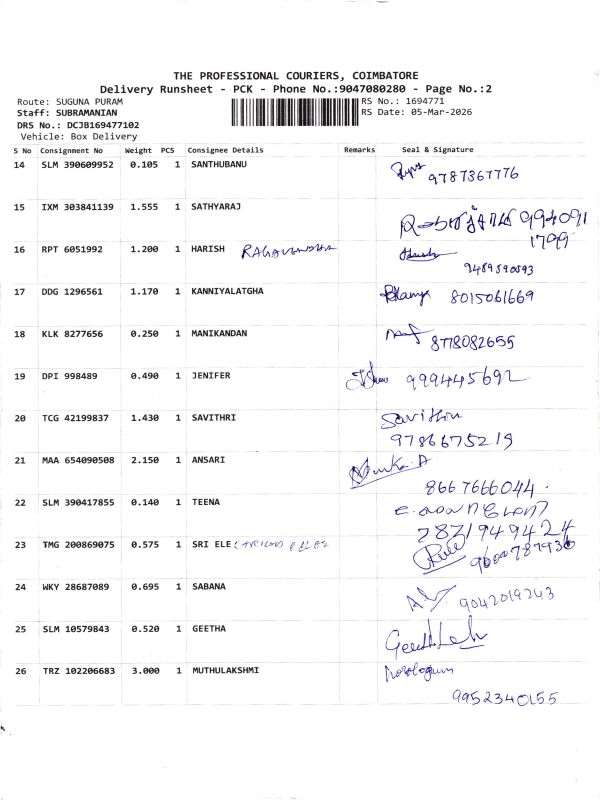 THE PROFESSIONAL COURIERS, COIMBATORE
Delivery Runsheet - PCK - Phone No.:9047080280 - Page No.:2
Route: SUGUNA PURAM
RS No.: 1694771
Staff: SUBRAMANIAN
RS Date: 05-Mar-2026
DRS No.: DCJB169477102
Vehicle: Box Delivery
S No Consignment No Weight PCS Consignee Details Remarks Seal & Signature
14 SLM 390609952 0.105 1 SANTHUBANU
9787367776
15 IXM 303841139 1.555 1 SATHYARAJ
994091
1799
16 RPT 6051992 1.200 1 HARISH RAGAVENDHA
9489590593
17 DDG 1296561 1.170 1 KANNIYALATGHA
8015061669
18 KLK 8277656 0.250 1 MANIKANDAN
8778082655
19 DPI 998489 0.490 1 JENIFER
999445692
20 TCG 42199837 1.430 1 SAVITHRI
Savithri
9786675219
21 MAA 654090508 2.150 1 ANSARI
8667666044.
22 SLM 390417855 0.140 1 TEENA
7871949424
23 TMG 200869075 0.575 1 SRI ELE
24 WKY 28687089 0.695 1 SABANA
9042019243
25 SLM 10579843 0.520 1 GEETHA
26 TRZ 102206683 3.000 1 MUTHULAKSHMI
9952340155